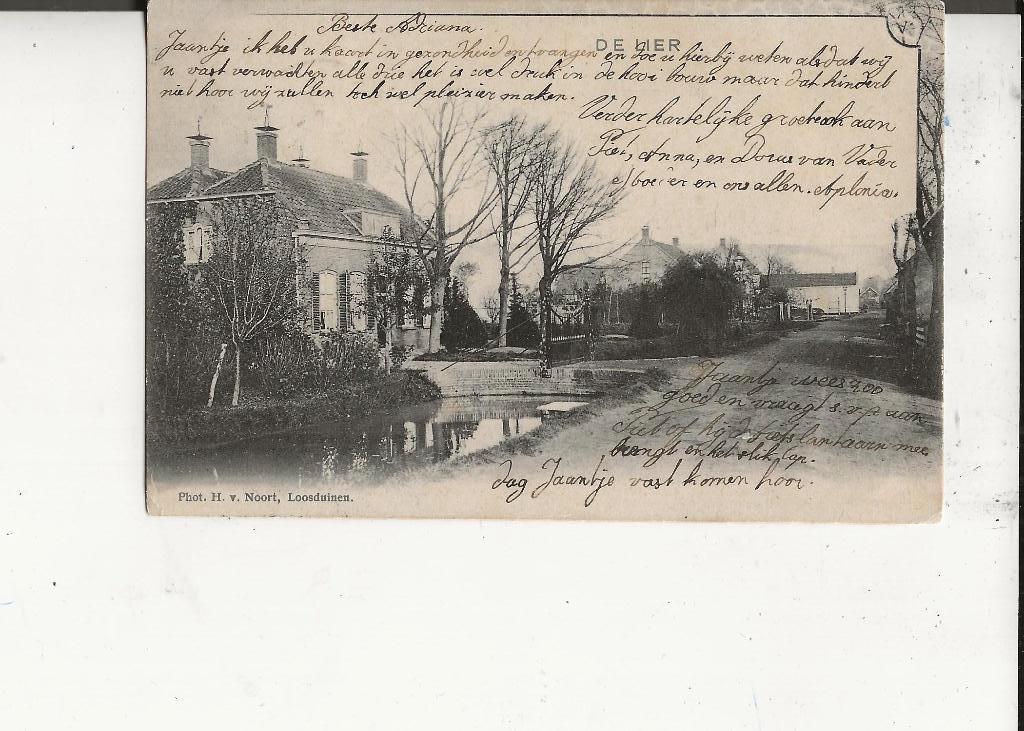 Beste Adriana.
DE LIER
Jaantje ik heb u kaart in gezondheid ontvangen en doe u hierbij weten als dat wij
u vast verwachten alle drie het is wel druk in de hooi bouw maar dat hindert
niet hoor wij zullen toch wel pleizier maken.
Verder hartelijke groeten ook aan
Piet, Anna, en Dorus van Vader
Moeder en ons allen. Aplonia.
Jaantje wees zoo
goed en vraagt s.v.p aan
Piet of hij d fiets lantaarn mee
brengt en het slik lap.
dag Jaantje vast komen hoor.
Phot. H. v. Noort, Loosduinen.